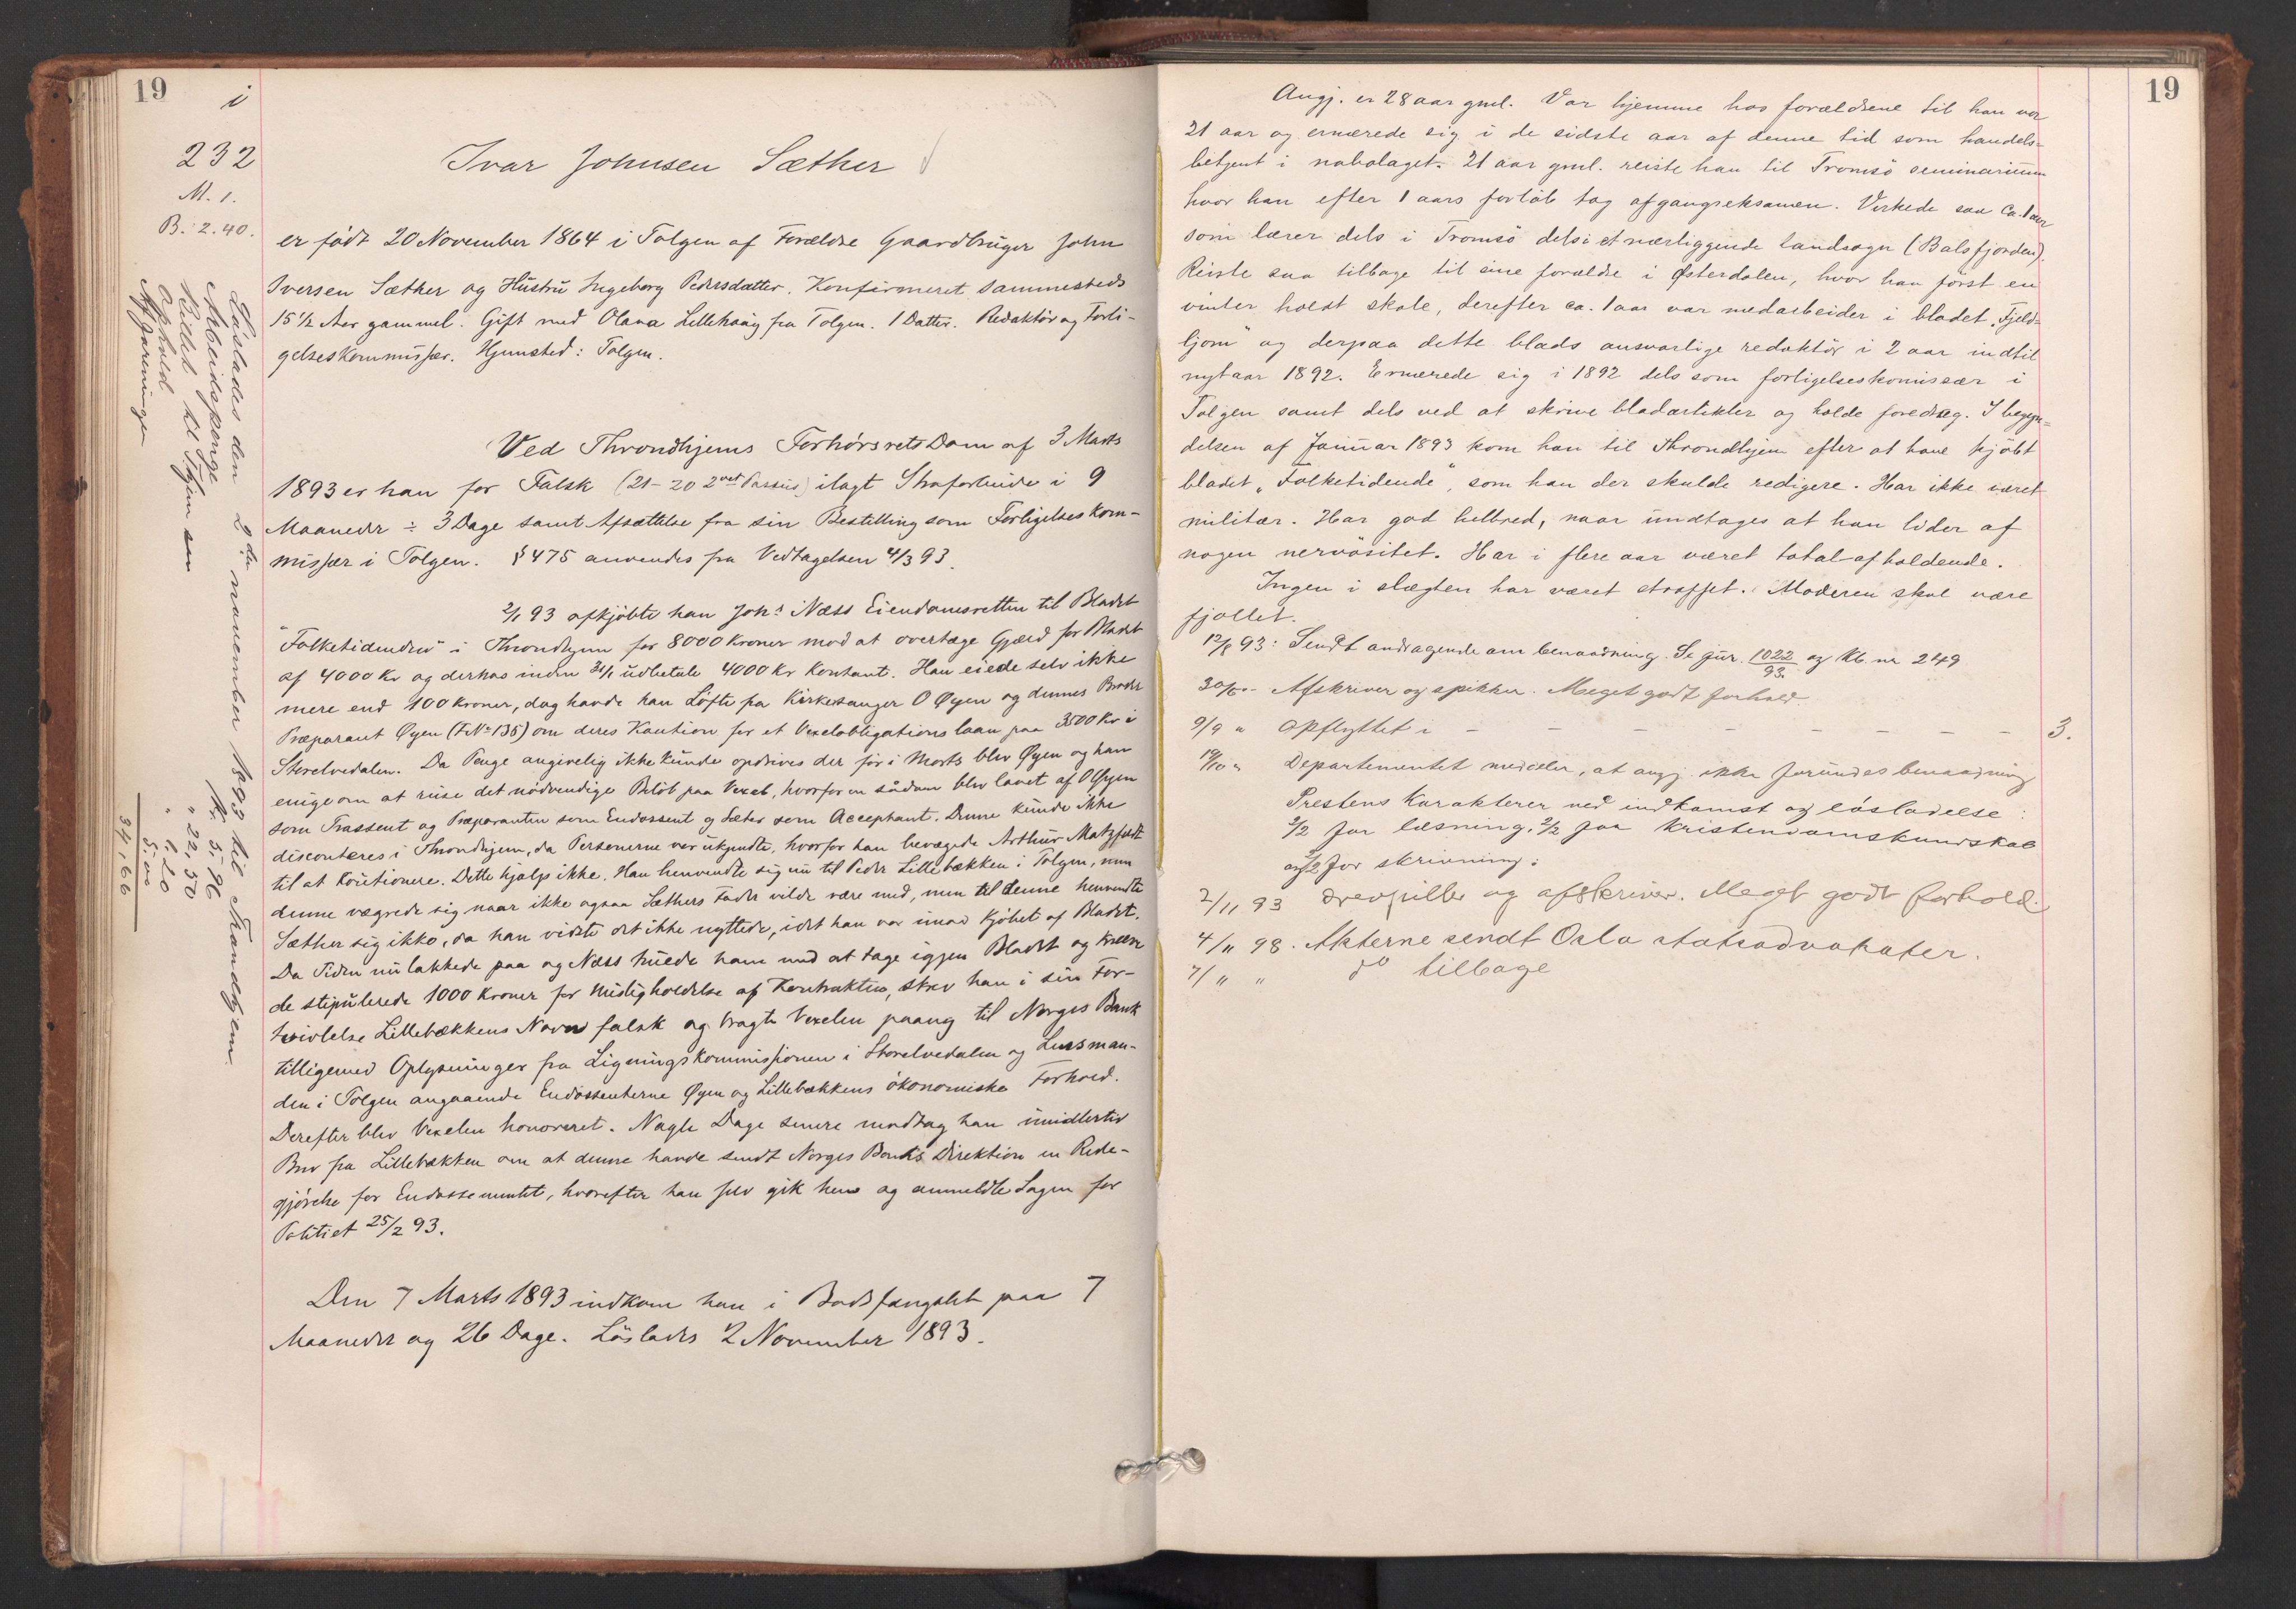 19
i
232
M. 1.
B. 2.40.
Ivar Johnsen Sæther
er født 20 November 1864 i Tolgen af Forældre Gaardbruger John
Iversen Sæther og Hustru Ingeborg Pedersdatter. Konfirmeret sammesteds
15 1/2 Aar gammel. Gift med Olava Lillehaug fra Tolgen. 1 Datter. Redaktör og Forli-
gelseskommissær. Hjemsted: Tolgen.
Ved Throndhjems Forhörsrets Dom af 3 Marts
1893 er han for Falsk (21-20 2det Passus) ilagt Strafarbeide i 9
Maaneder ÷ 3 Dage samt Afsættelse fra sin Bestilling som Forligelseskom-
missær i Tolgen. § 475 anvendes fra Vedtagelsen 4/3 93.
2/1 93 afkjöbte han Johs Næss Eiendomsretten til Bladet
"Folketidende" i Throndhjem for 8000 Kroner mod at overtage Gjæld for Bladet
af 4000 Kr og derhos inden 31/1 udbetale 4000 Kr kontant. Han eiede selv ikke
mere end 100 Kroner, dog havde han Löfte fra Kirkesanger O Øyen og dennes Broder
Præparant Øyen (F.No 135) om deres Kaution for et Vexelobligationslaan paa 3500 Kr i
Storelvedalen. Da Penge angivelig ikke kunde opdrives der för i Marts blev Øyen og han
enige om at reise det nödvendige Belöb paa Vexel, hvorfor en sådan blev lavet af O Øyen
som Trassent og Præparanten som Endossent og Sæter som Acceptant. Denne kunde ikke
disconteres i Throndhjem, da Personerne var ukjendte, hvorfor han bevægede Arthur Motzfeldt
til at kautionere. Dette hjalp ikke. Han henvendte sig nu til Peder Lillebækken i Tolgen, men
denne vægrede sig naar ikke ogsaa Sæthers Fader vilde være med, men til denne henvendte
Sæther sig ikke, da han vidste det ikke nyttede, idet han var imod Kjöbet af Bladet.
Da Tiden nu lakkede paa og Næss truede ham med at tage igjen Bladet og kræve
de stipulerede 1000 Kroner for Misligholdelse af Kontrakten, skrev han i sin For-
tvivlelse Lillebækkens Navn falsk og bragte Vexelen paany til Norges Bank
tilligemed Oplysninger fra Ligningskommissionen i Storelvedalen og Lensman-
den i Tolgen angaaende Endossenterne Øyen og Lillebækkens ökonomiske Forhold.
Derefter blev Vexelen honoreret. Nogle Dage senere modtog han imidlertid
Brev fra Lillebækken om at denne havde sendt Norges Banks Direktion en Rede-
gjörelse for Endossementet, hvorefter han selv gik hen og anmeldte Sagen for
Politiet 25/2 93.
Den 7 Marts 1893 indkom han i Bodsfængslet paa 7
Maaneder og 26 Dage. Löslades 2 November 1893.
Löslades den 2de november 1893 til Trondhjem.
Arbeidspenge Kr. 5,96
Billet til Thjem " 22,50
Ophold " 1,20
5,00
34,66
19
Angj. er 28 aar gml. Var hjemme hos forældrene til han var
21 aar og ernærede sig i de sidste aar af denne tid som handels-
betjent i nabolaget. 21 aar gml. reiste han til Tromsö seminarium
hvor han efter 1 aars forlöb tog afgangseksamen. Virkede saa ca. 1 aar
som lærer dels i Tromsö dels i et nærliggende landsogn (Balsfjorden).
Reiste saa tilbage til sine forældre i Østerdalen, hvor han först en
vinter holdt skole, derefter ca. 1 aar var medarbeider i bladet "Fjeld-
ljom" og derpaa dette blads ansvarlige redaktör i 2 aar indtil
nytaar 1892. Ernærede sig i 1892 dels som forligelseskomissær i
Tolgen samt dels ved at skrive bladartikler og holde foredrag. I begyn-
delsen af Januar 1893 kom han til Throndhjem efter at have kjöbt
bladet "Folketidende", som han der skulde redigere. Har ikke været
militær. Har god helbred, naar undtages at han lider af
nogen nervösitet. Har i flere aar været total-afholdende.
Ingen i slægten har været straffet. Moderen skal være
fjollet.
12/8 93: Sendt andragende om benaadning. Se jur. 1022/93 og Kb. nr 249
30/8 - Afskriver og spikker. Meget godt forhold.
9/9 " Opflyttet i - - - - - - - 3.
19/10 " Departementet meddeler, at angj. ikke forundes benaadning
Prestens Karakterer ved indkomst og lösladelse:
2/2 for læsning, 2/2 for kristendomskundskab
og 2/2 for skrivning.
2/11 93 Drevpiller og afskriver. Meget godt forhold.
4/11 98. Akterne sendt Oslo statsadvokater.
7/" " do tilbage